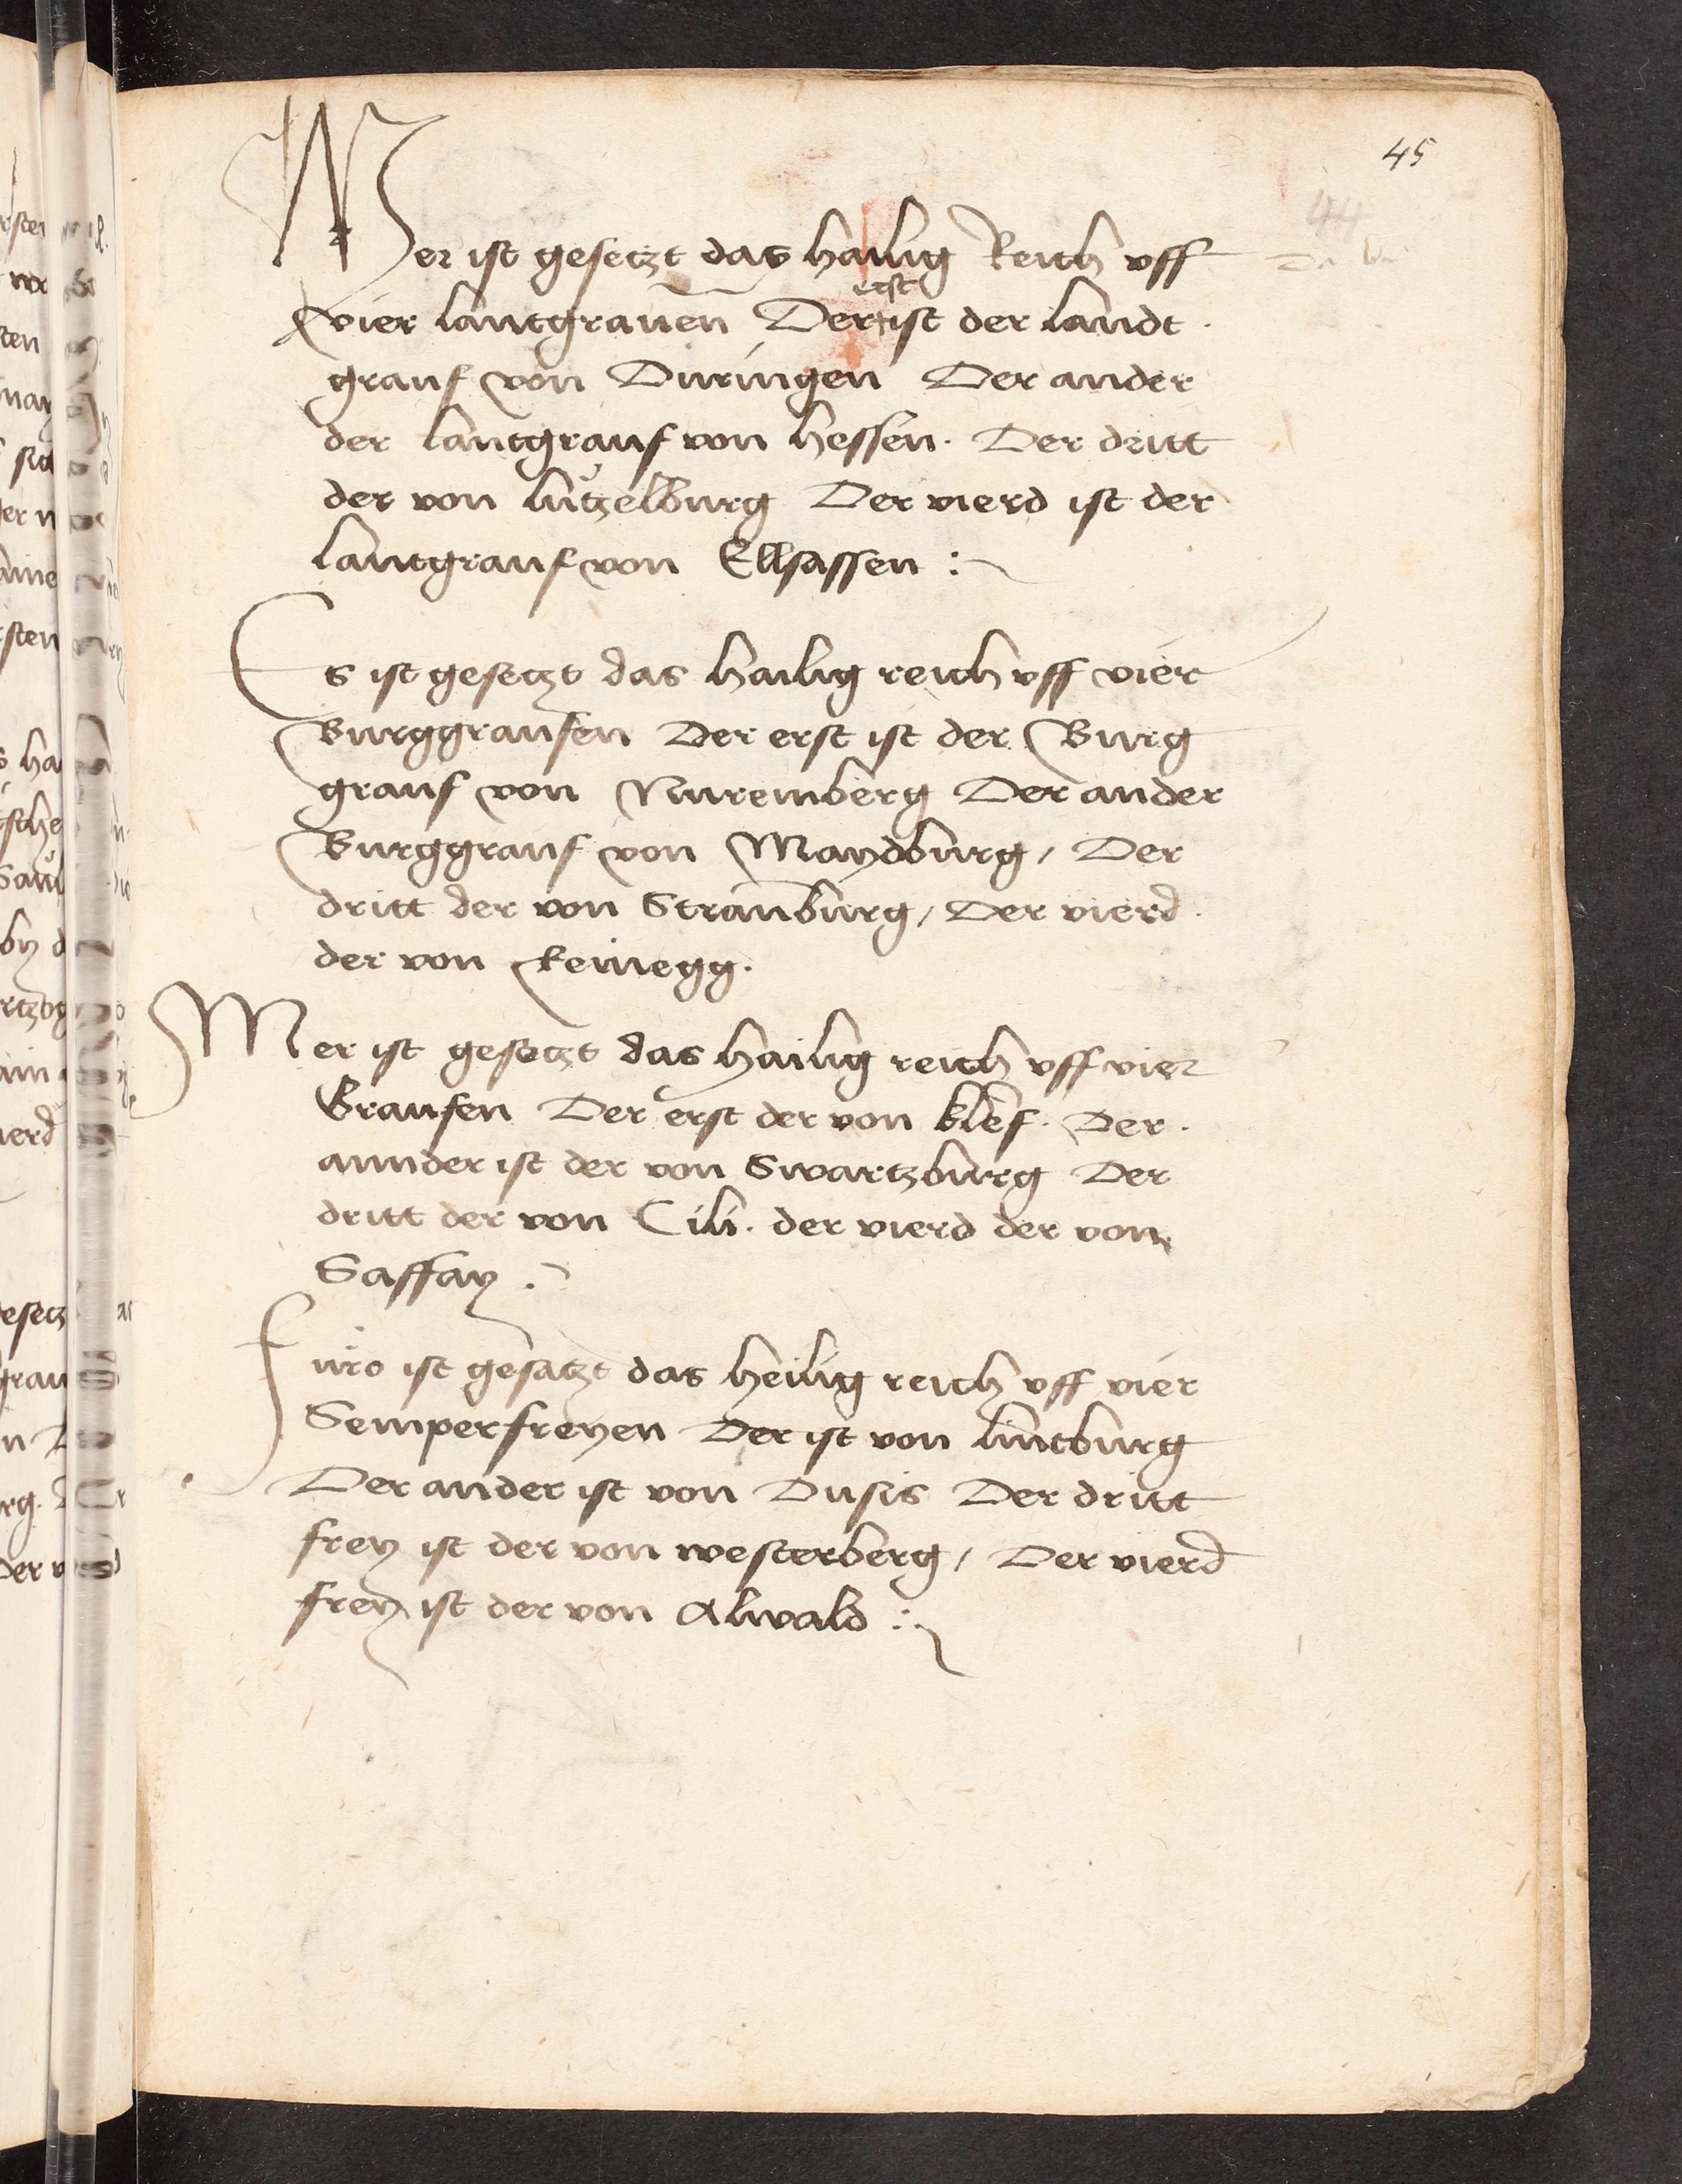 45
44
Mer ist gesetzt das hailig Reich vff
vier lantgrauen̄ Der erst ist der landt
grauf von Duringen Der ander
der lantgrauf von hessen. Der dritt
der von lützelburg Der vierd ist der
lantgrauf von Ellsassen :
Es ist gesetzt das hailig reich vff vier
Burggraufen Der erst ist der Burg
grauf von Nuremberg Der ander
Burggrauf von Maydburg / Der
dritt der von Straŭburg / Der vierd
der von Reinegg.
Mer ist gesetzt das hailig reich vff vier
Graufen Der erst der von klef. Der
annder ist der von Swartzburg Der
dritt der von Cili. der vierd der von
Saffay.
Furo ist gesatzt das heilig reich vff vier
Semperfreyen Der ist von lintburg
Der ander ist von Dusis Der dritt
frey ist der von westerberg / Der vierd
frey ist der von Alwald :